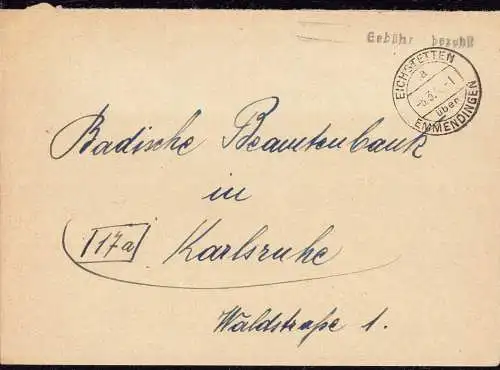 Gebühr bezahlt
EICHSTETTEN
a
über
EMMENDINGEN
Badische Beamtenbank
in
(17a) Karlsruhe
Waldstraße 1.